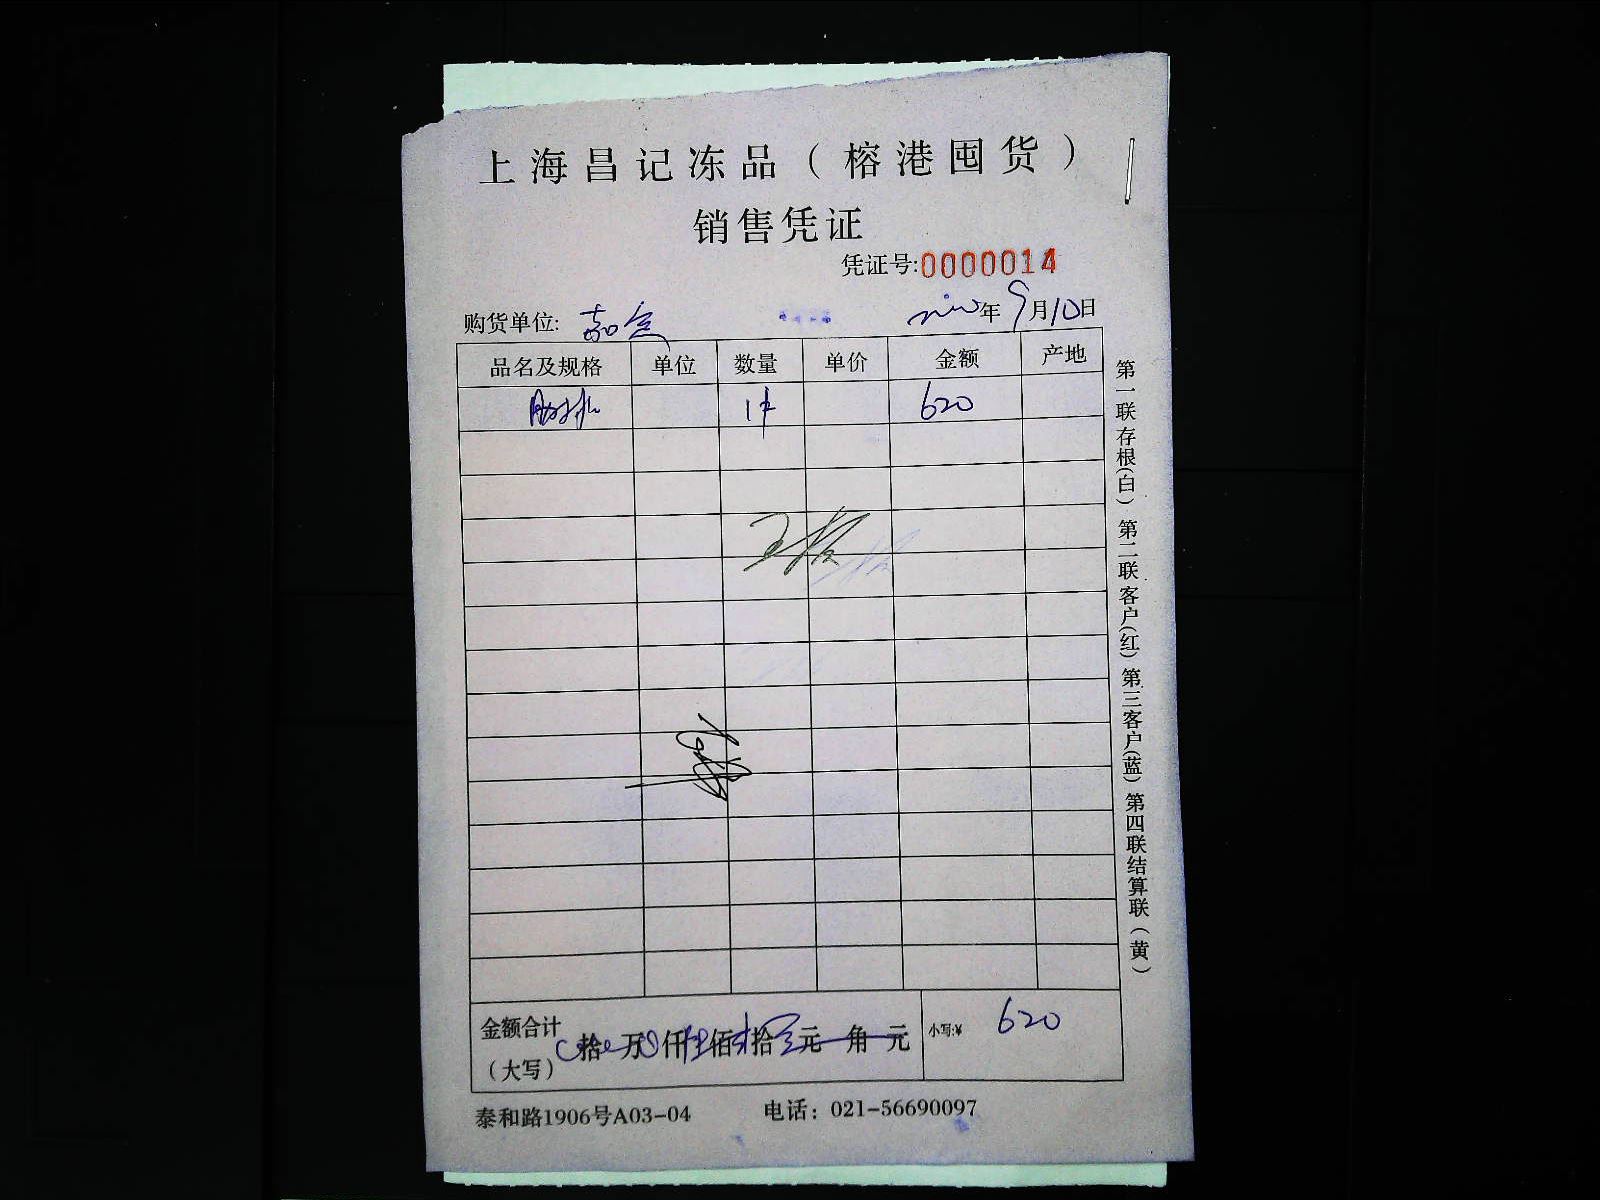 上海昌记冻品（榕港囤货）
销售凭证
凭证号:0000014
购货单位: 年9月10日
品名及规格 单位 数量 单价 金额 产地
肋排 1件 620
金额合计（大写） 拾 万 仟陆佰 拾 元 角 元 小写:¥ 620
泰和路1906号A03-04 电话：021-56690097
第一联存根(白) 第二联客户(红) 第三客户(蓝) 第四联结算联(黄)